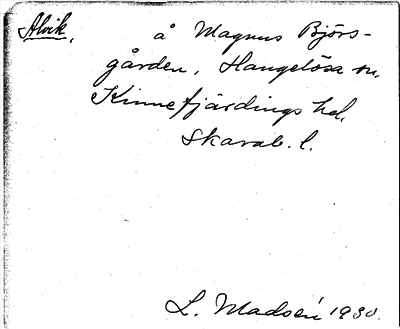 Alvik, å Magnus Björs-
gården, Hangelösa sn,
Kinnefjärdings hd,
Skarab. l.
L. Madsén 1930.